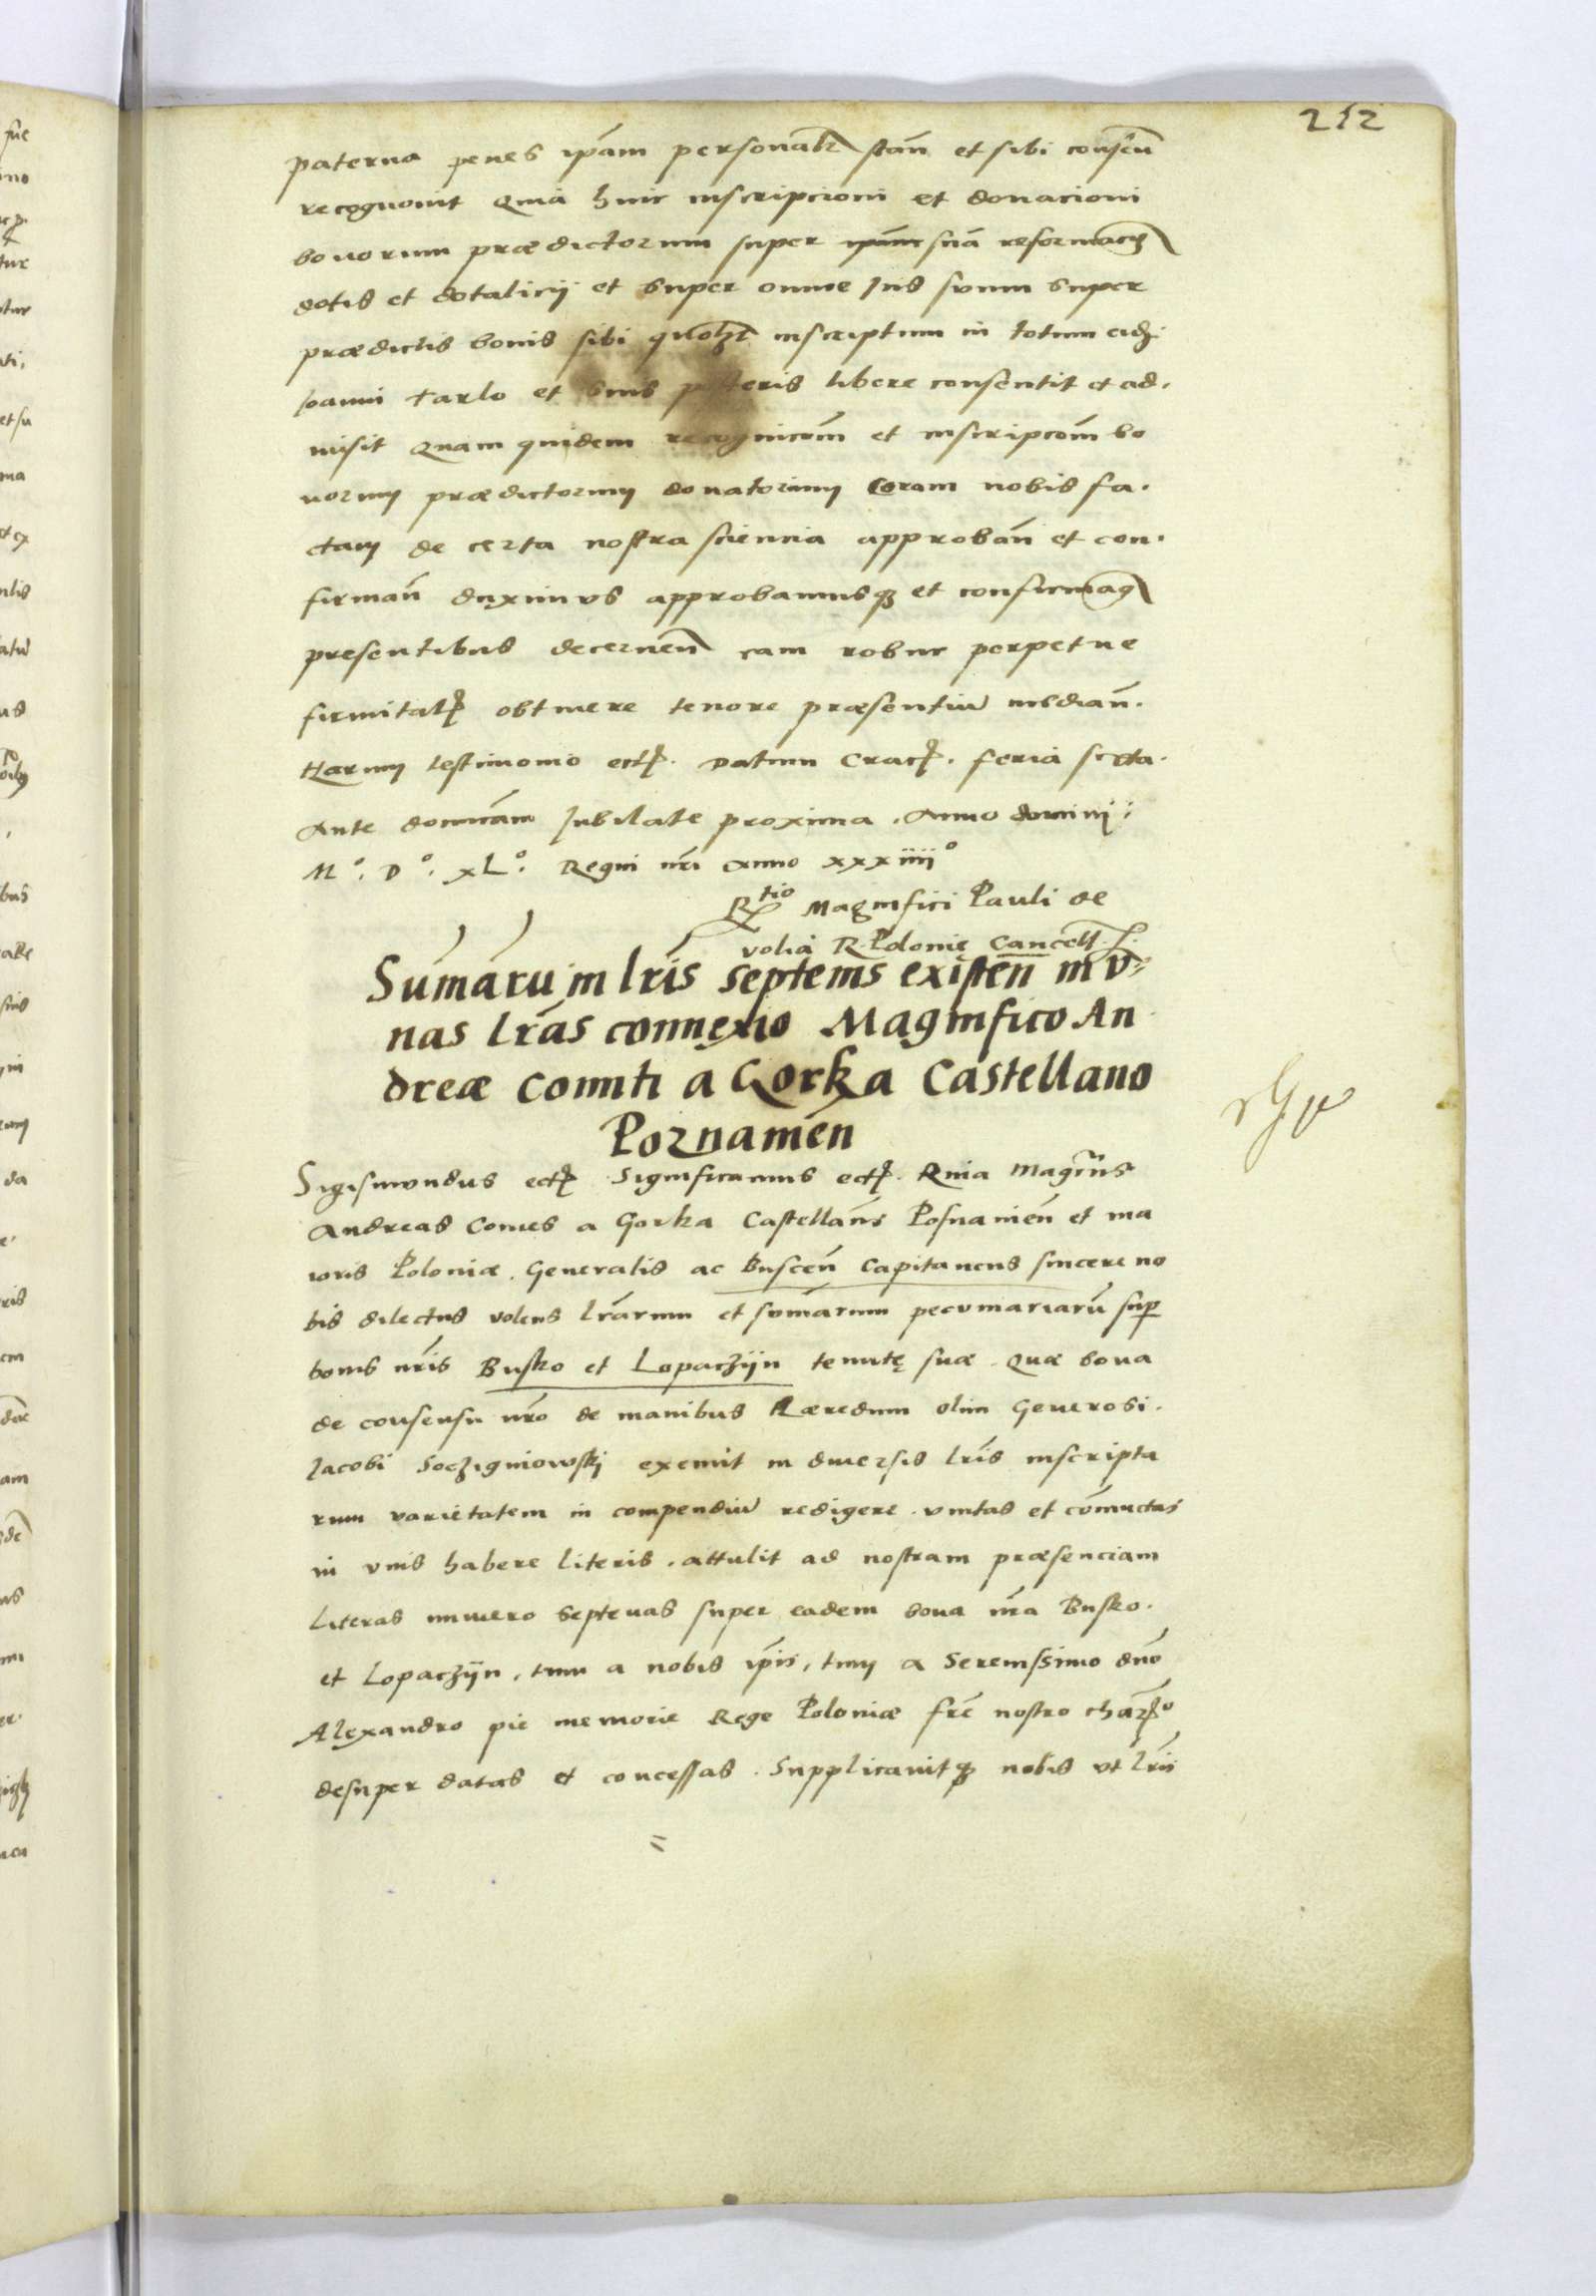 212
paterna penes ipãm personalr stañ et sibi conseñ
recognovit Quia huic inscripcioni et donacioni
bonorum prædictorum super suã reformacõ
dotis et dotalicij et super omne Jus suum super
prædictis bonis sibi inscriptum in totum eidẽ
Joanni Tarlo et suis posteris libere consentit et ad.
misit Quam quidem recognicõm et inscripcõm bo
norum prædictorum donatorum Coram nobis fa.
ctam de certa nostra sciencia approbañ et con.
firmañ duximus approbamusq; et confirmamᵍ
presentibus decerneñ eam robur perpetue
firmitatꝭ obtinere tenore præsentiũ mediañ.
Harum testimonio ectꝭ. Datum Cracꝭ. feria sexta.
Ante dominicam Jubilate proxima. Anno domini:
Mº: Dº: XLº: Regni nri anno xxxiiiiº
Rtio Magnifici Pauli de
volia R. Polonię Cancell.
Sumaru in lris septemis existeñ in v=
nas lras connexio Magnifico An
dreæ Comiti a Gorka Castellano
Poznamen
Sigismundus ectꝭ Significamus ectꝭ. Quia Magcus
Andreas Comes a Gorka Castellanus Posnanieñ et ma
ioris Poloniæ. Generalis ac Busceñ Capitaneus sincere no
bis dilectus volens lrarum et sumarum pecuniariarũ sup
bonis nris Busko et Lopaczijn tenutę suæ. Quæ bona
de consensu nro de manibus Hæredum olim Generosi.
Jacobi Soczigniowskj exemit in diversis lris inscripta
rum varietatem in compendiũ redigere. vnitas et cõniunctas
in vnis habere literis. attulit ad nostram præsenciam
literas numero Septenas super eadem bona nra Busko.
et Lopaczijn, tum a nobis ipis, tum a Serenissimo dno
Alexandro pie memorie Rege Poloniæ fre nostro charmo
desuper datas et concessas. Supplicavitq; nobis vt lris